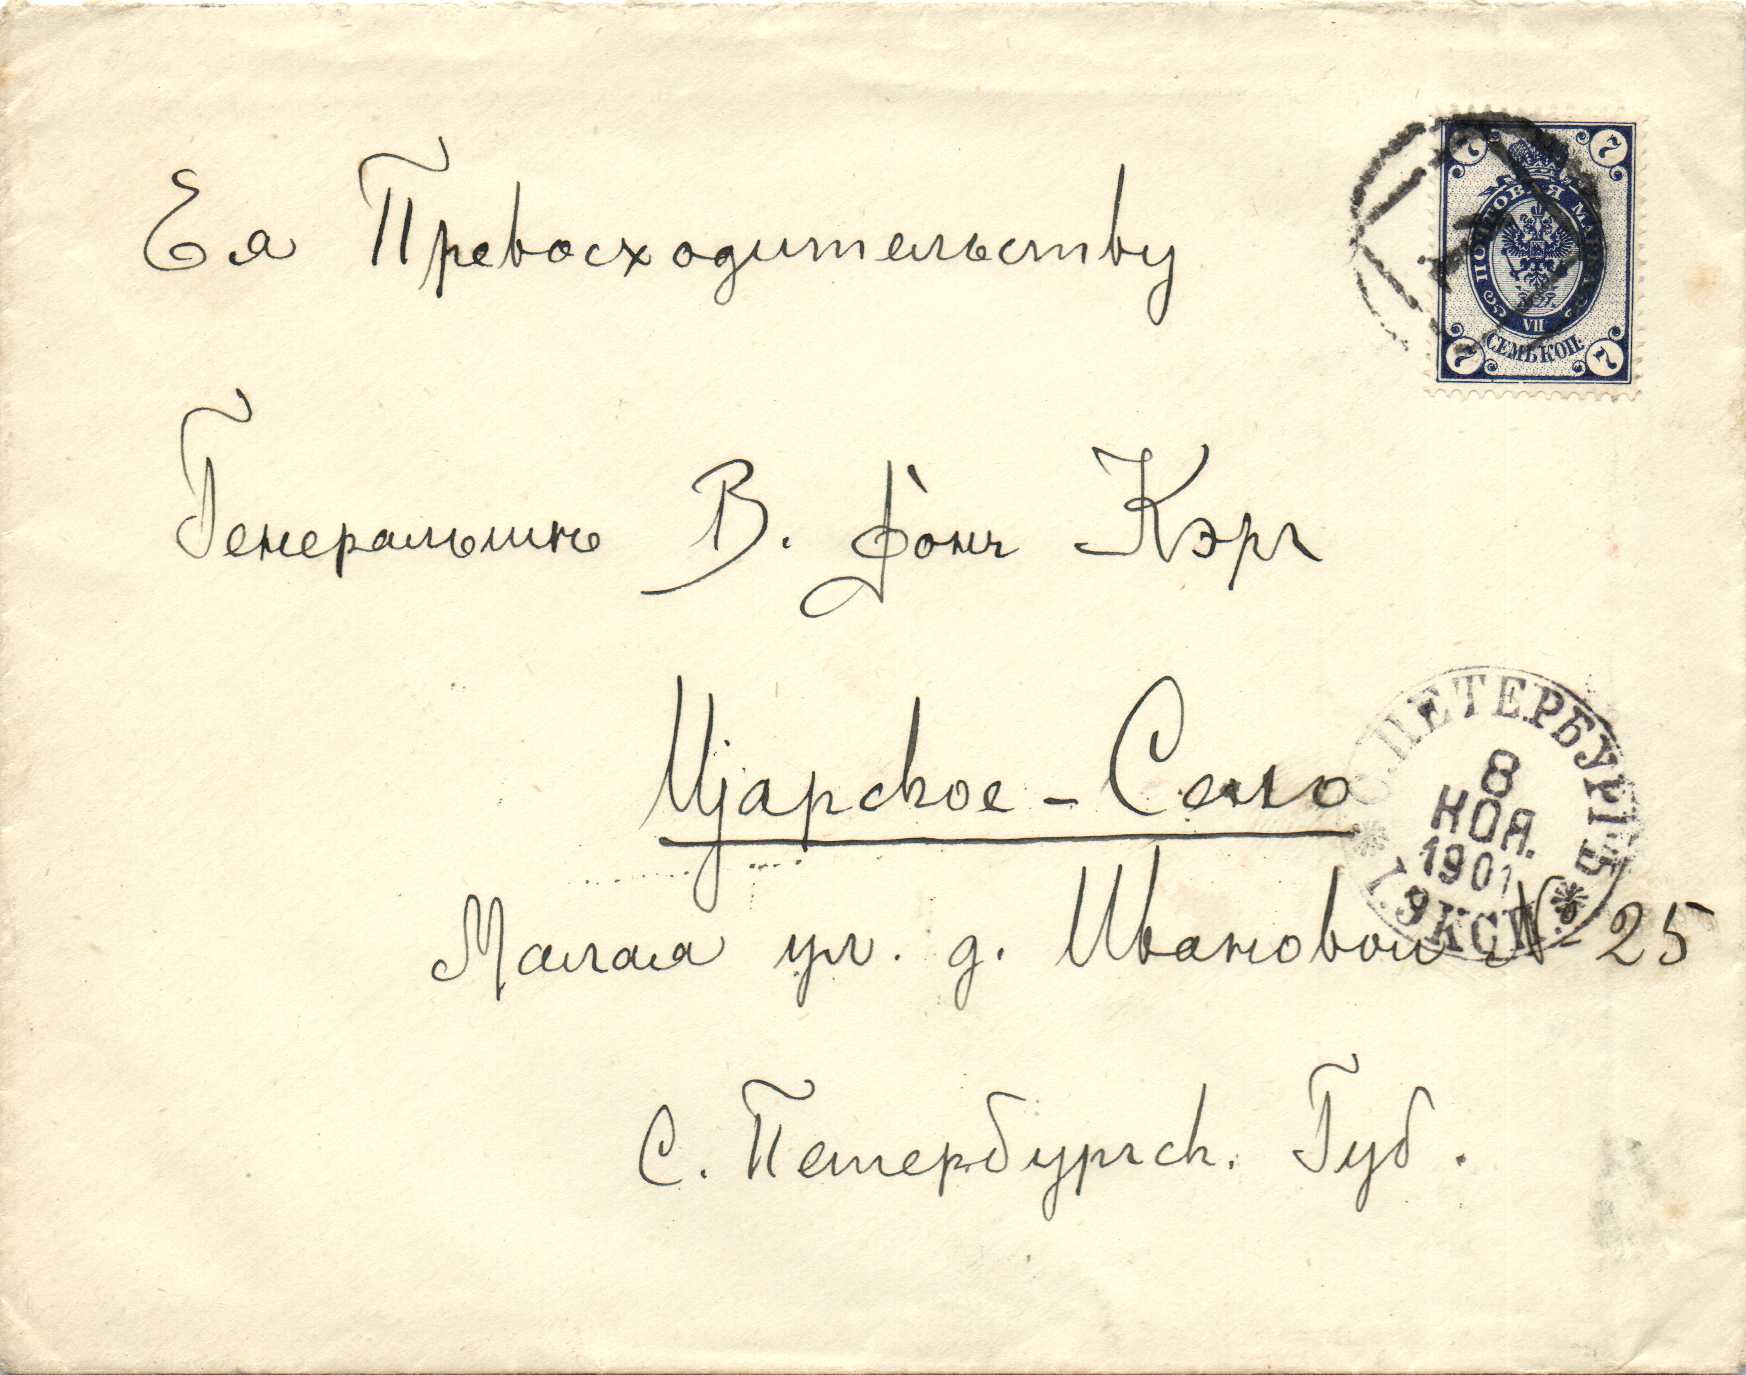 Ея Превосходительству
7 7
ПОЧТОВАЯ МАРКА
VII
СЕМЬ КОП.
7 7
Генеральшѣ В. фонъ Кэръ
Царское-Село
С.ПЕТЕРБУРГЪ
8
НОЯ.
1901
1.ЭКСП.
Малая ул. д. Ивановой № 25
С. Петербургск. Губ.